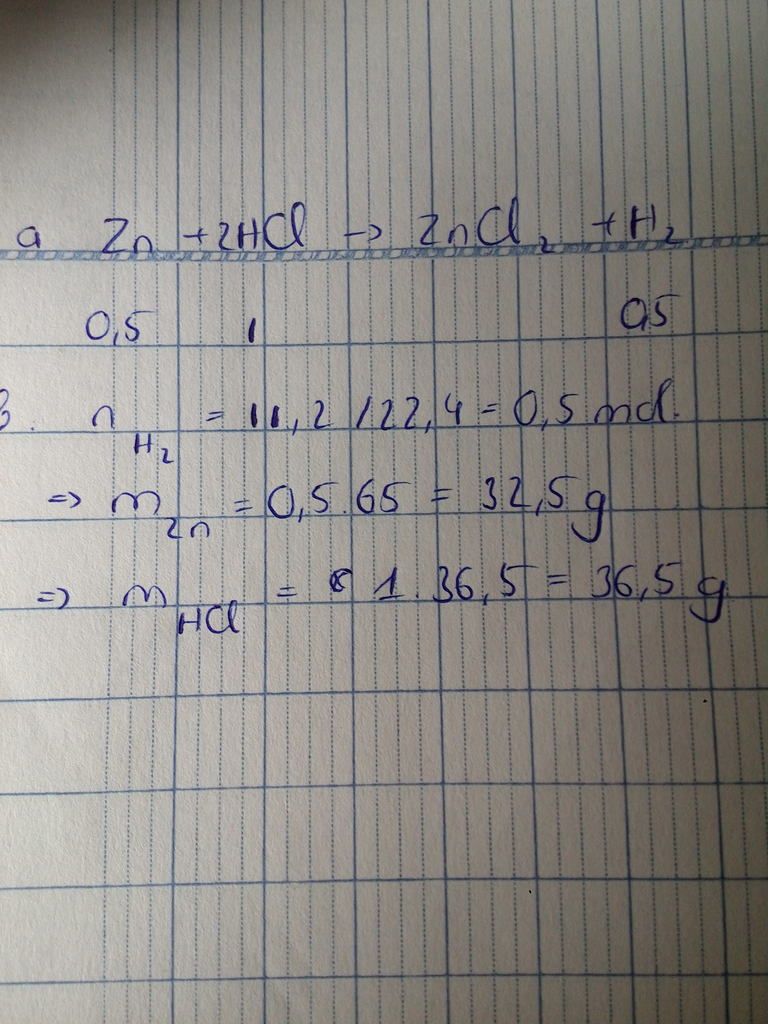 a Zn + 2HCl -> ZnCl₂ + H₂
0,5 1 0,5
b. n H₂ = 11,2 / 22,4 = 0,5 mol.
=> m Zn = 0,5.65 = 32,5 g
=> m HCl = 1.36,5 = 36,5 g